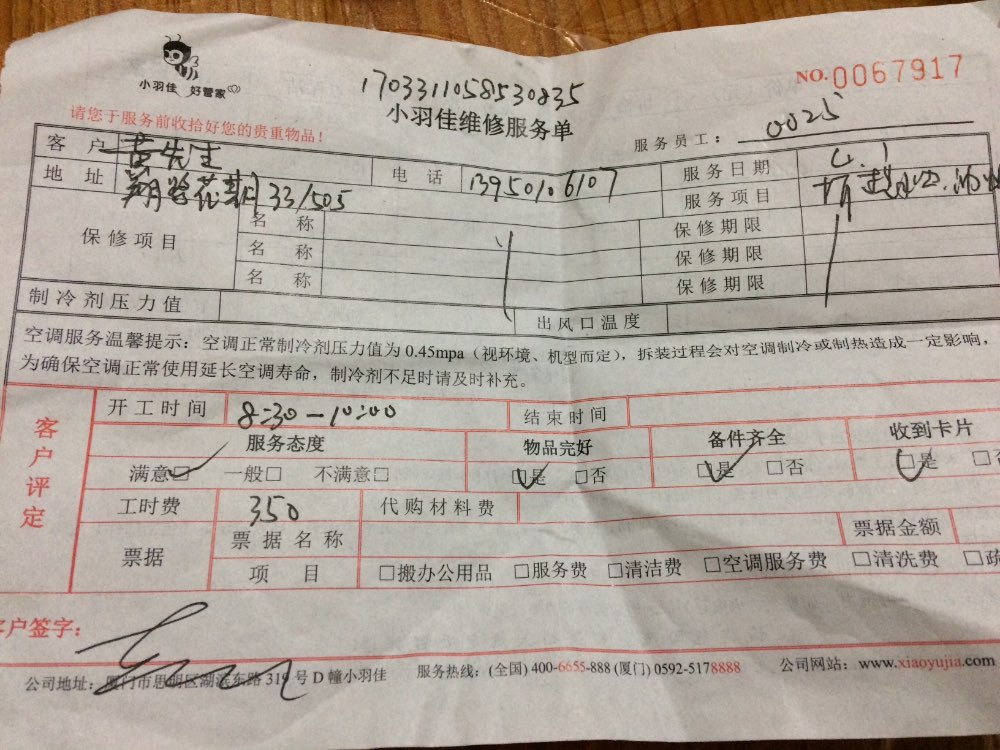 小羽佳 好管家
1703311058530835
NO.0067917
小羽佳维修服务单
请您于服务前收拾好您的贵重物品！
服务员工： 0025
客户 黄先生 电话 13950106107 服务日期
地址 33/505 服务项目
保修项目 名称 保修期限
名称 保修期限
名称 保修期限
制冷剂压力值 出风口温度
空调服务温馨提示：空调正常制冷剂压力值为 0.45mpa（视环境、机型而定），拆装过程会对空调制冷或制热造成一定影响，
为确保空调正常使用延长空调寿命，制冷剂不足时请及时补充。
客户评定
开工时间 8:30-10:00 结束时间
服务态度 物品完好 备件齐全 收到卡片
满意□ 一般□ 不满意□ □是 □否 □是 □否 □是 □否
工时费 350 代购材料费
票据 票据名称 票据金额
项目 □搬办公用品 □服务费 □清洁费 □空调服务费 □清洗费 □疏
客户签字：
公司地址：厦门市思明区湖滨东路 319 号 D 幢小羽佳 服务热线：(全国) 400-6655-888 (厦门) 0592-5178888 公司网站：www.xiaoyujia.com